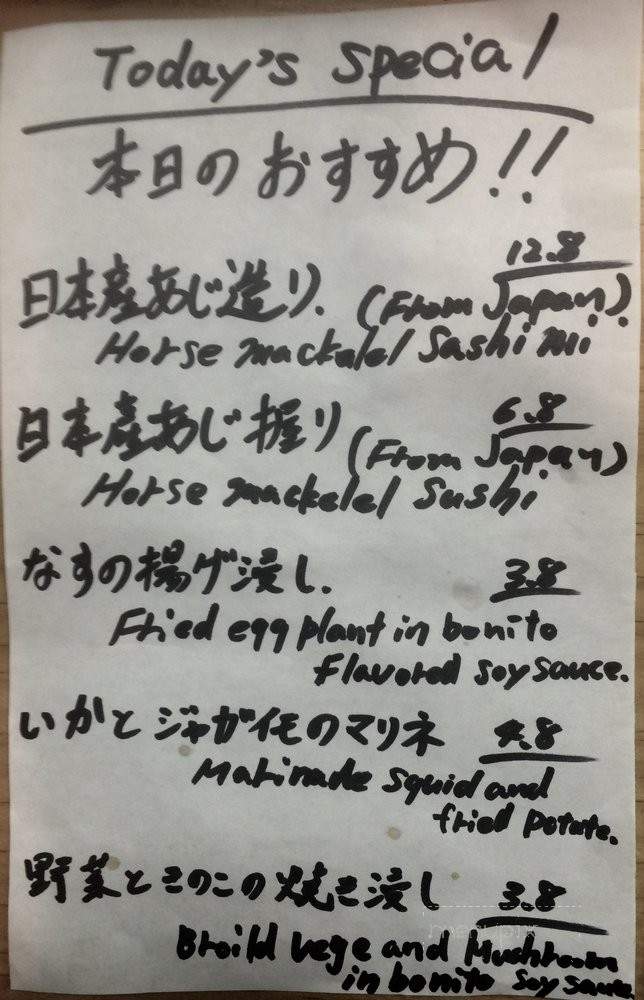 Today's Special
本日のおすすめ!!
12.8
日本産あじ造り. (From Japan).
Horse mackelel Sashimi
6.8
日本産あじ握り (From Japan)
Horse mackelel Sushi
なすの揚げ浸し. 3.8
Fried egg plant in bonito
Flavored soy sauce.
いかとジャガイモのマリネ 4.8
Marinade squid and
fried potate.
野菜ときのこの焼き浸し 3.8
Broild vege and Mushroom
in bonito Soy sauce.